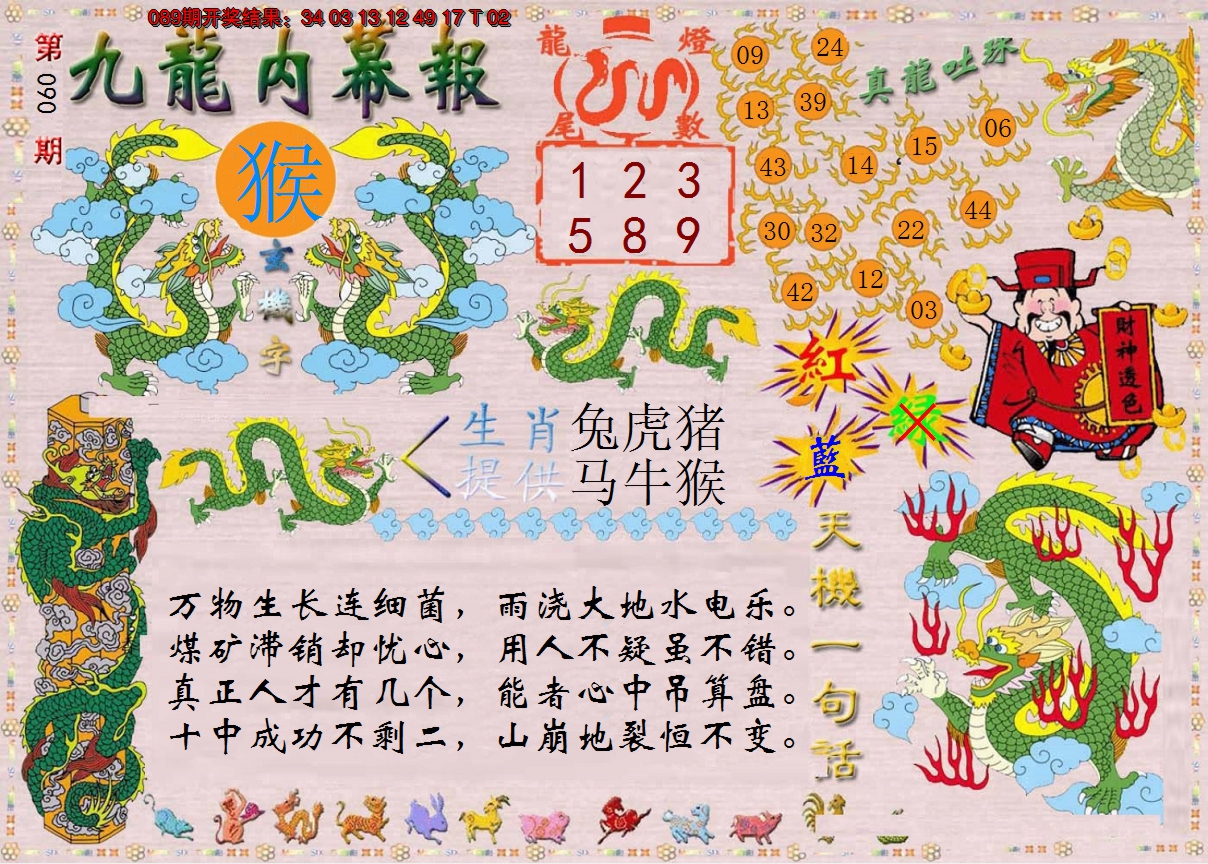 089期开奖结果：34 03 13 12 49 17 T 02
第090期
九龍内幕報
猴
玄機字
龍燈尾數
1 2 3
5 8 9
真龍吐珠
09 24
13 39
43 14 15 06
30 32 22 44
42 12 03
紅
绿
藍
財神透色
生肖 兔虎猪
提供 马牛猴
万物生长连细菌，雨浇大地水电乐。
煤矿滞销却忧心，用人不疑虽不错。
真正人才有几个，能者心中吊算盘。
十中成功不剩二，山崩地裂恒不变。
天機一句話